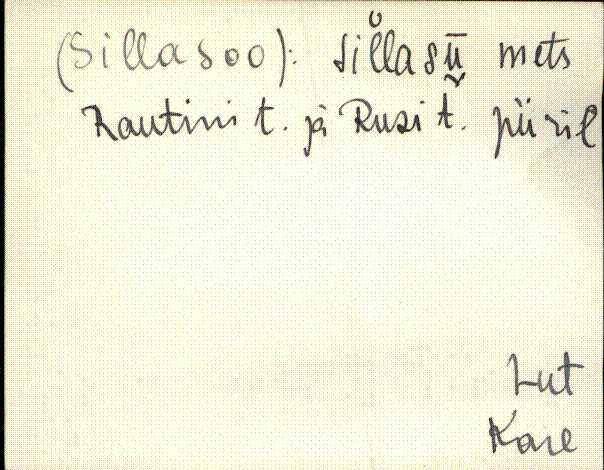 (Sillasoo): sillasū mets
Rautini t. ja Rusi t. piiril
Lut
Kare